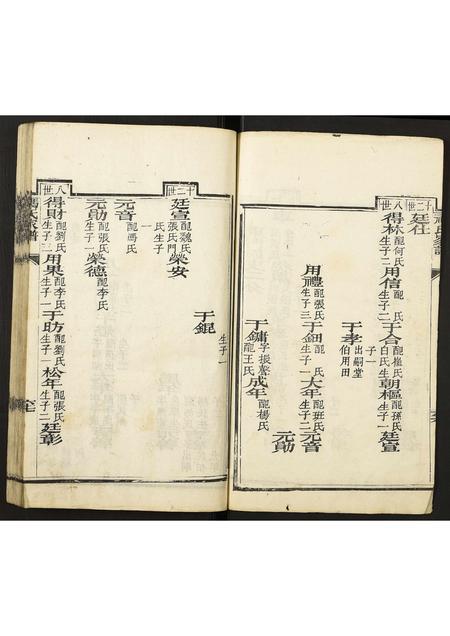 十二世
廷仕
八世
得林 配何氏 生子二 用信 配 氏 生子二 于合 配崔氏 白氏生子一 朝樞 配孫氏 生子一 廷宣
于孝 出嗣堂伯用田
用禮 配張氏 生子三 于鈿 配 氏 生子一 大年 配班氏 生子二 元音
元勛
于鏞 字振聲 配王氏 成年 配楊氏
生子一
于錕
十二世
廷宣 配魏氏 張氏門氏生子一 榮安
元音 配馮氏
元勛 配張氏 生子一 榮德 配李氏
八世
得財 配劉氏 生子三 用果 配李氏 生子一 于昉 配劉氏 生子一 松年 配張氏 生子二 廷彰